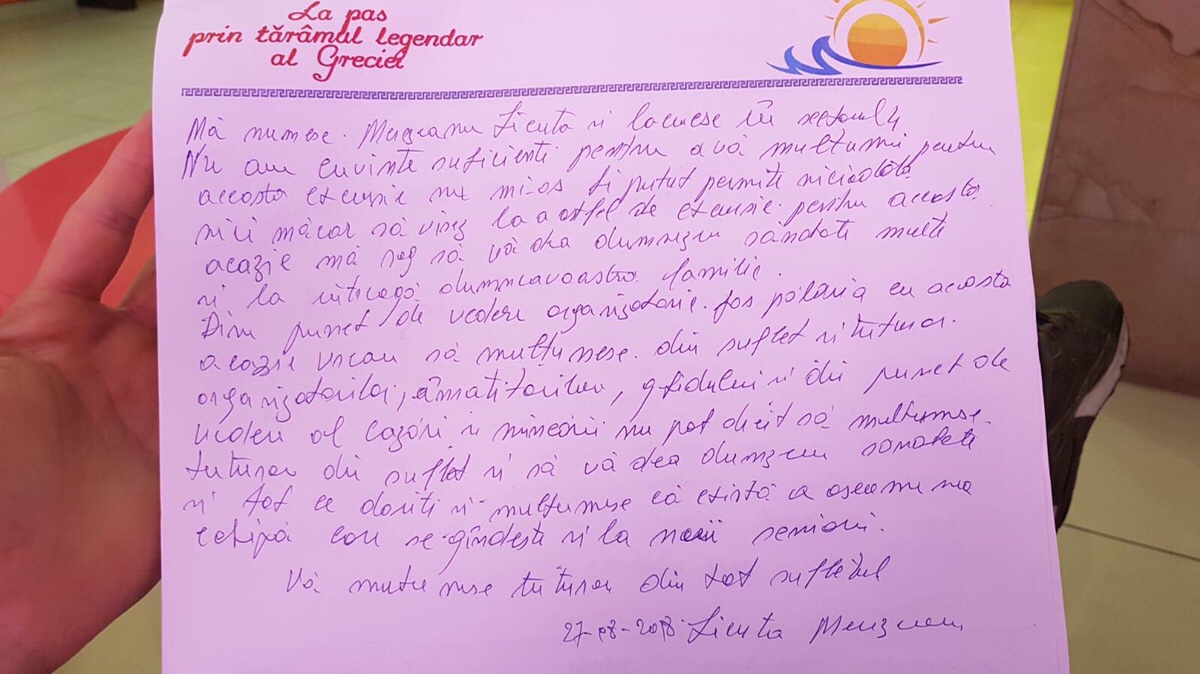 La pas
prin tărâmul legendar
al Greciei
Mă numesc. și locuiesc în sectorul 4
Nu am cuvinte suficienti pentru a vă multumii pentru
aceosta excursie nu mi-as fi putut permite niciodotă
nici măcar să visez la a astfel de excursie. pentru aceosta
acazie mă rog să vă dea dumnezeu sănătate multi
și la intreogă dumneavoastro familie.
Din punct de vedere organizatoric. jos pălăria cu aceosta
acozie vreau să multumesc. din suflet și tuturor.
organizatorilor, însoțitorilor, ghidului și din punct de
vedere al cazări și mincării nu pot decit să multumesc.
tuturor din suflet și să vă dea dumnezeu sanatate
și tot ce doriti și multumesc că există o asemenea
echipă care se gîndeste și la noii seniori.
Vă multumesc tuturor din tot sufletul
27-08-2018